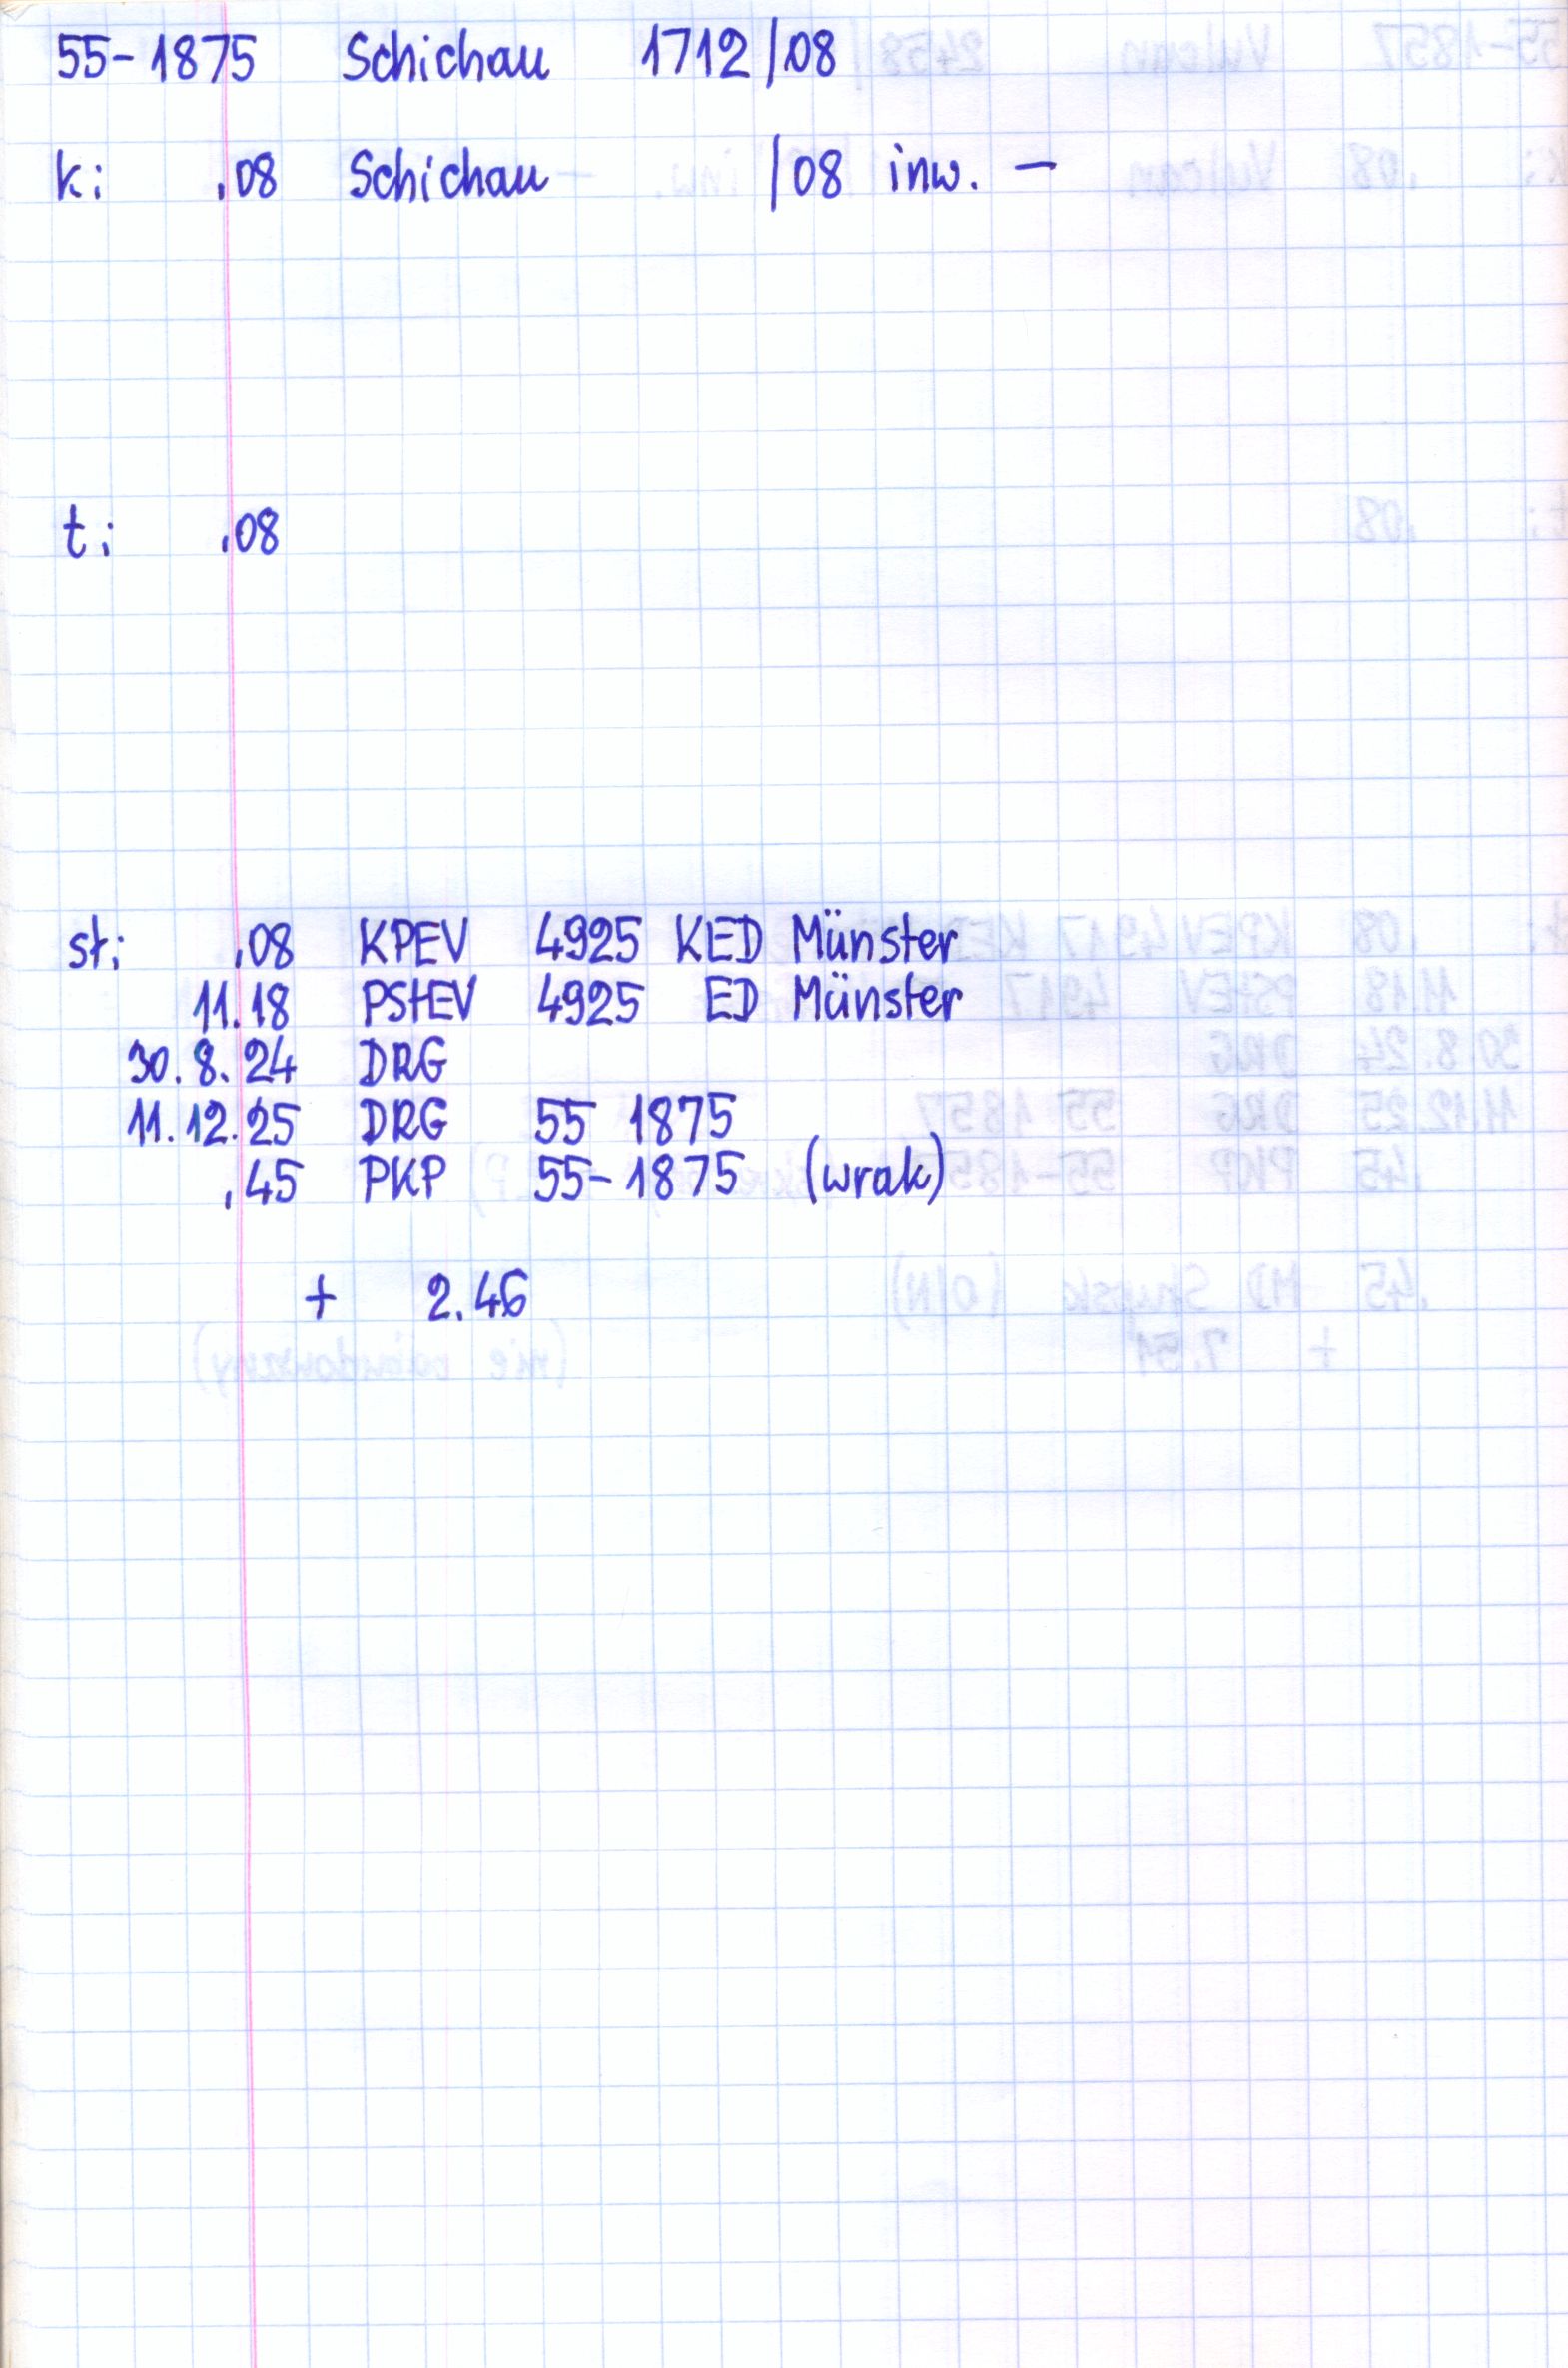 55-1875 Schichau 1712/08
k: .08 Schichau /08 inw. —
t: .08
st: .08 KPEV 4925 KED Münster
11.18 PStEV 4925 ED Münster
30.8.24 DRG
11.12.25 DRG 55 1875
.45 PKP 55-1875 (wrak)
+ 2.46